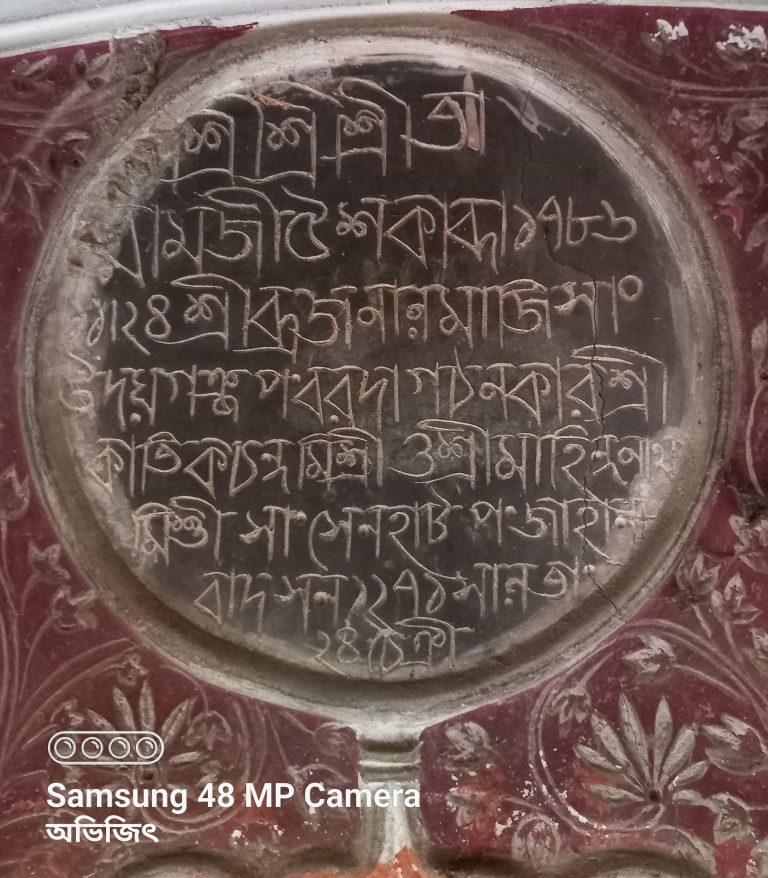 শ্রী শ্রী শ্রী
রামজীউ শকাব্দা ১৭৮৬
২৪ শ্রীব্রজনাথ মাজি সাং
উদয়গঞ্জ পং বরদা গঠনকার শ্রী
কার্তিকচন্দ্র মিস্ত্রী ও শ্রীমাহিন্দ্রনাথ
মিস্ত্রী সাং সেনহাট পং জাহানা
বাদ সন ১২৭১ সাল তাং
২৪ চৈত্রী
Samsung 48 MP Camera
অভিজিৎ